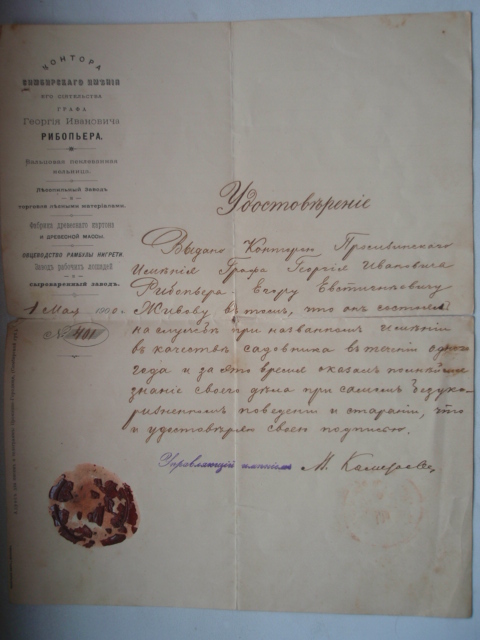 КОНТОРА
СИМБИРСКАГО ИМѢНІЯ
ЕГО СІЯТЕЛЬСТВА
ГРАФА
Георгія Ивановича
РИБОПЬЕРА.
Вальцовая пшеничная
мельница.
Лѣсопильный Заводъ
и
торговля лѣсными матеріалами.
Фабрика древеснаго картона
и древесной массы.
ОВЦЕВОДСТВО РАМБУЛЬЕ НИГРЕТИ
Заводъ рабочихъ лошадей
и
сыроваренный заводъ.
1 Мая 1900 г.
№ 401
Удостовѣреніе
Выдано Конторою
Имѣнія Графа Георгія Ивановича
Рибопьера Егору Евстигнѣеву
Живову въ томъ, что онъ состоялъ
на службѣ при названномъ имѣніи
въ качествѣ садовника въ теченіи одного
года и за это время оказалъ полнѣйшее
знаніе своего дѣла при самомъ безуко-
ризненномъ поведеніи и стараніи, что
и удостовѣряю своею подписью.
Управляющій имѣніемъ М.